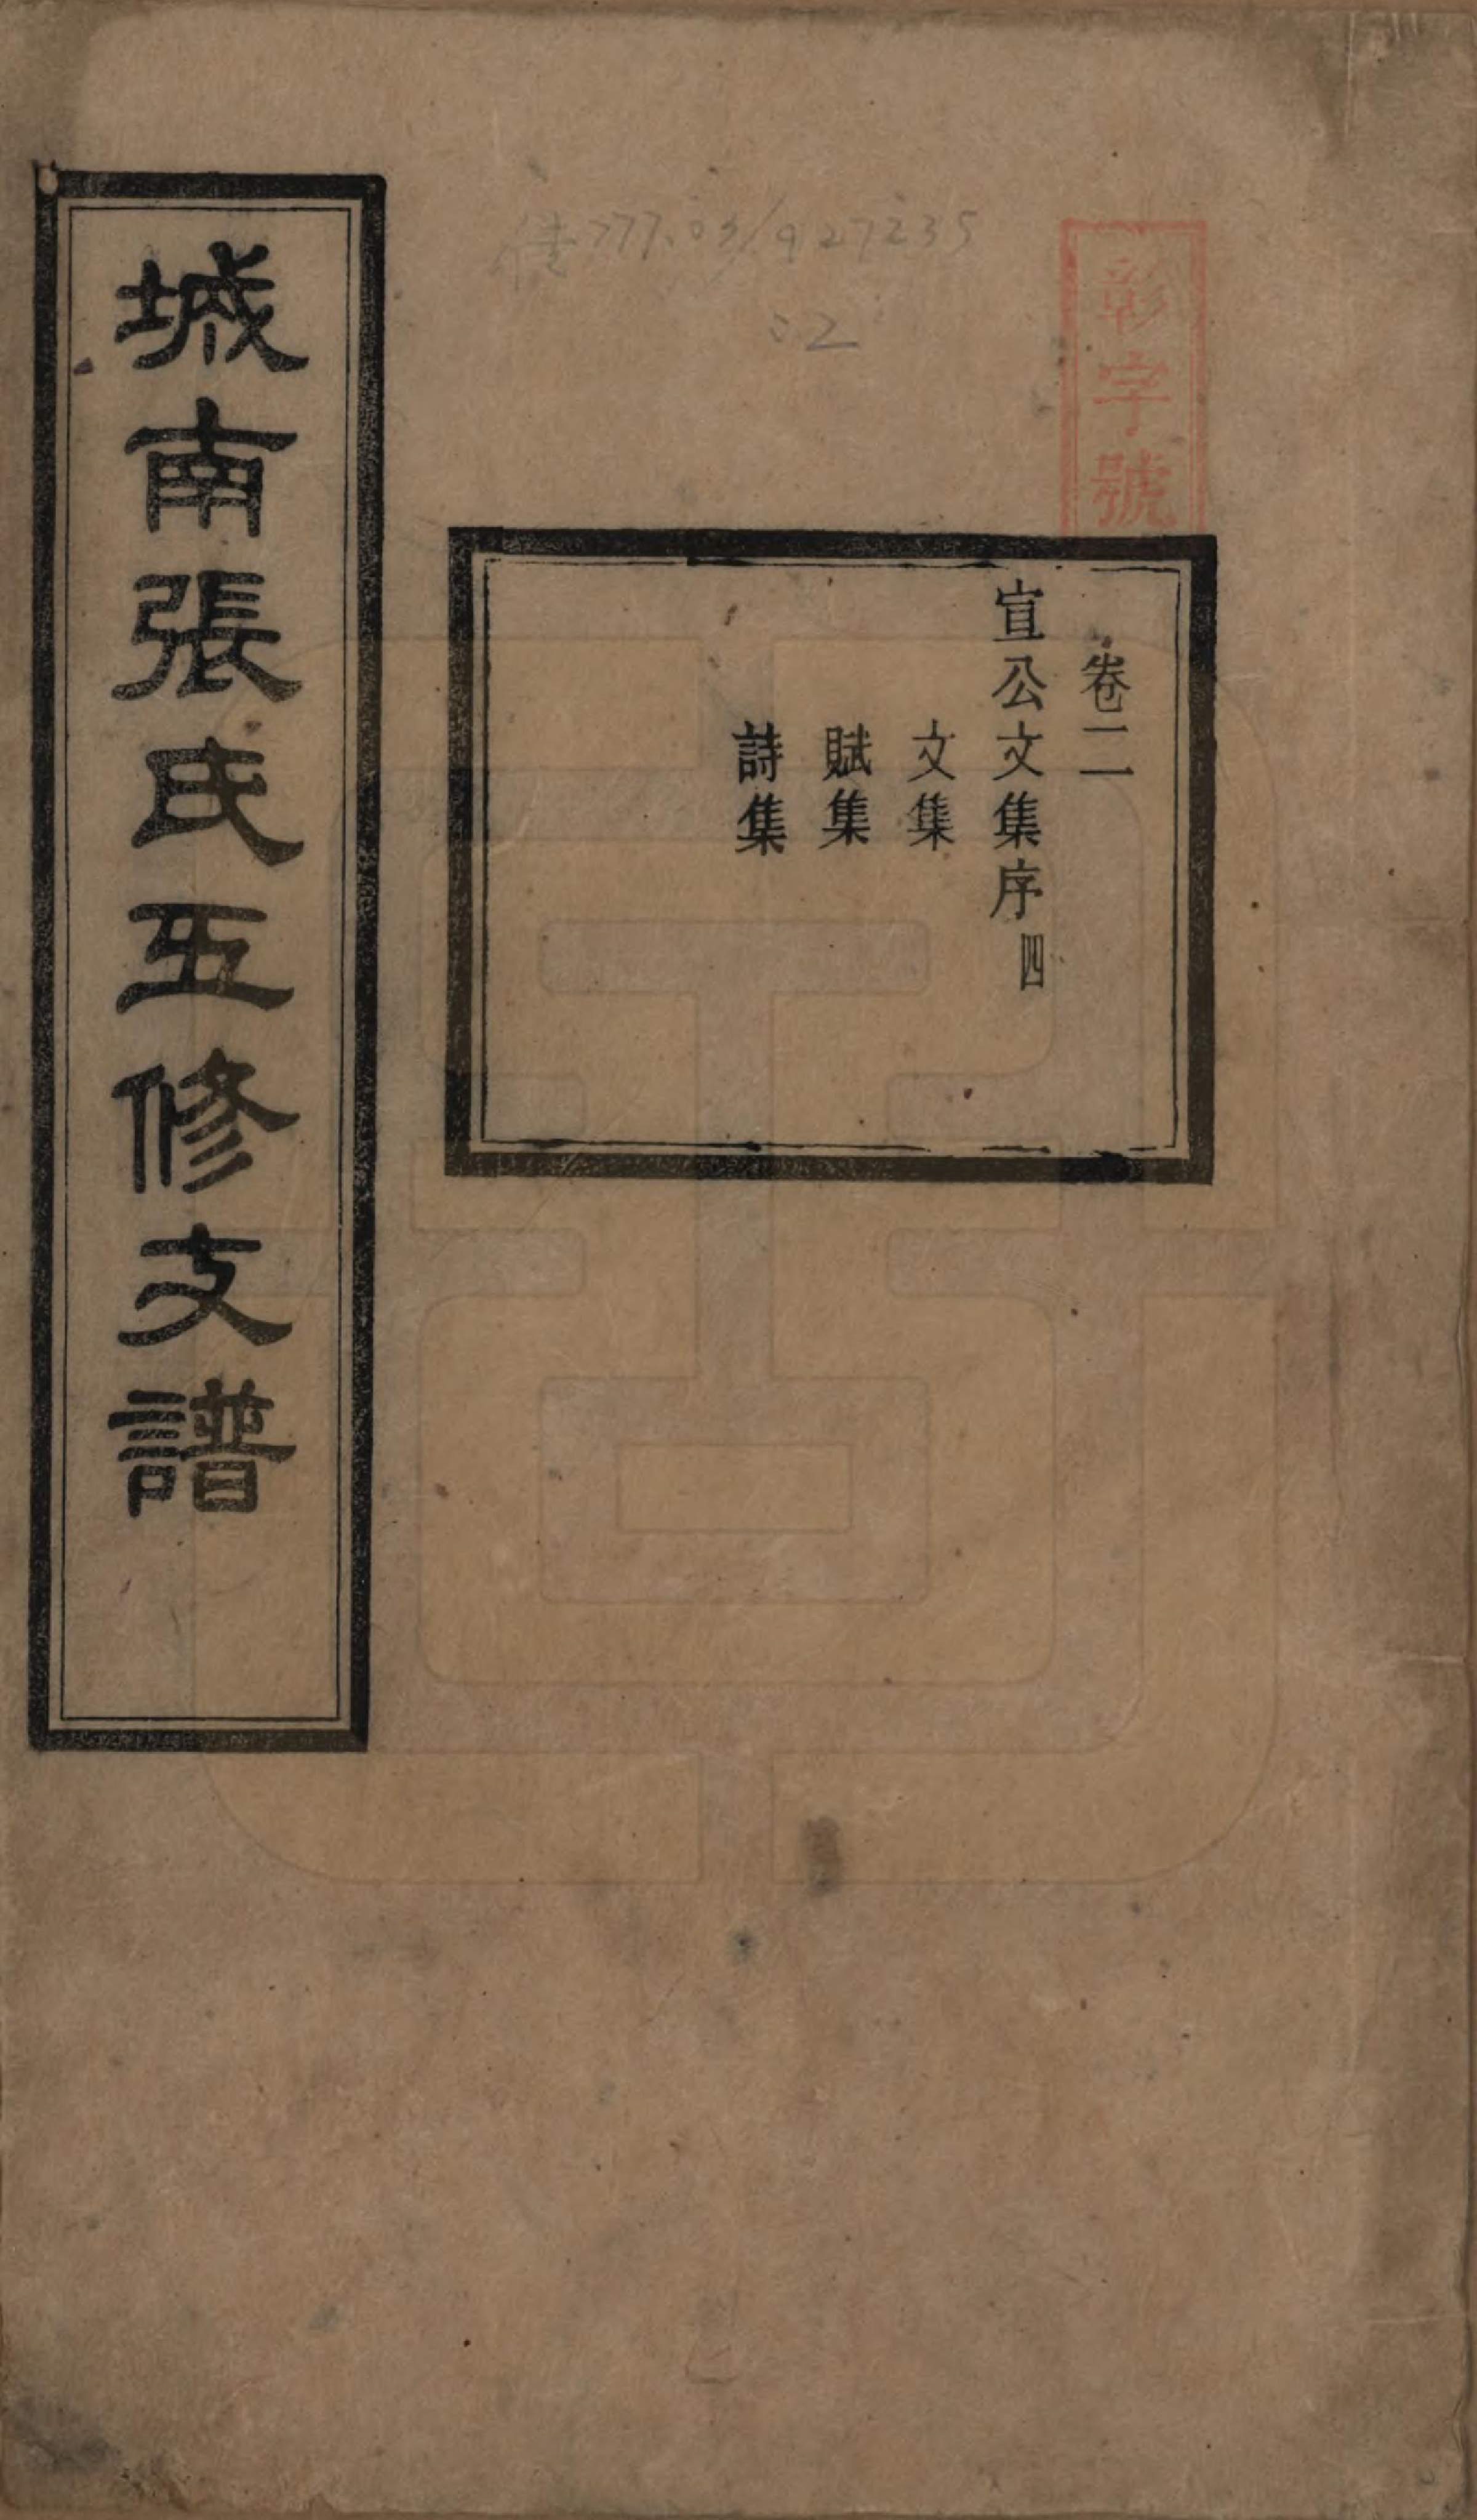 彰字號
卷二
宣公文集序四
文集
賦集
詩集
城南張氏五修支譜
777.03/927235
:2